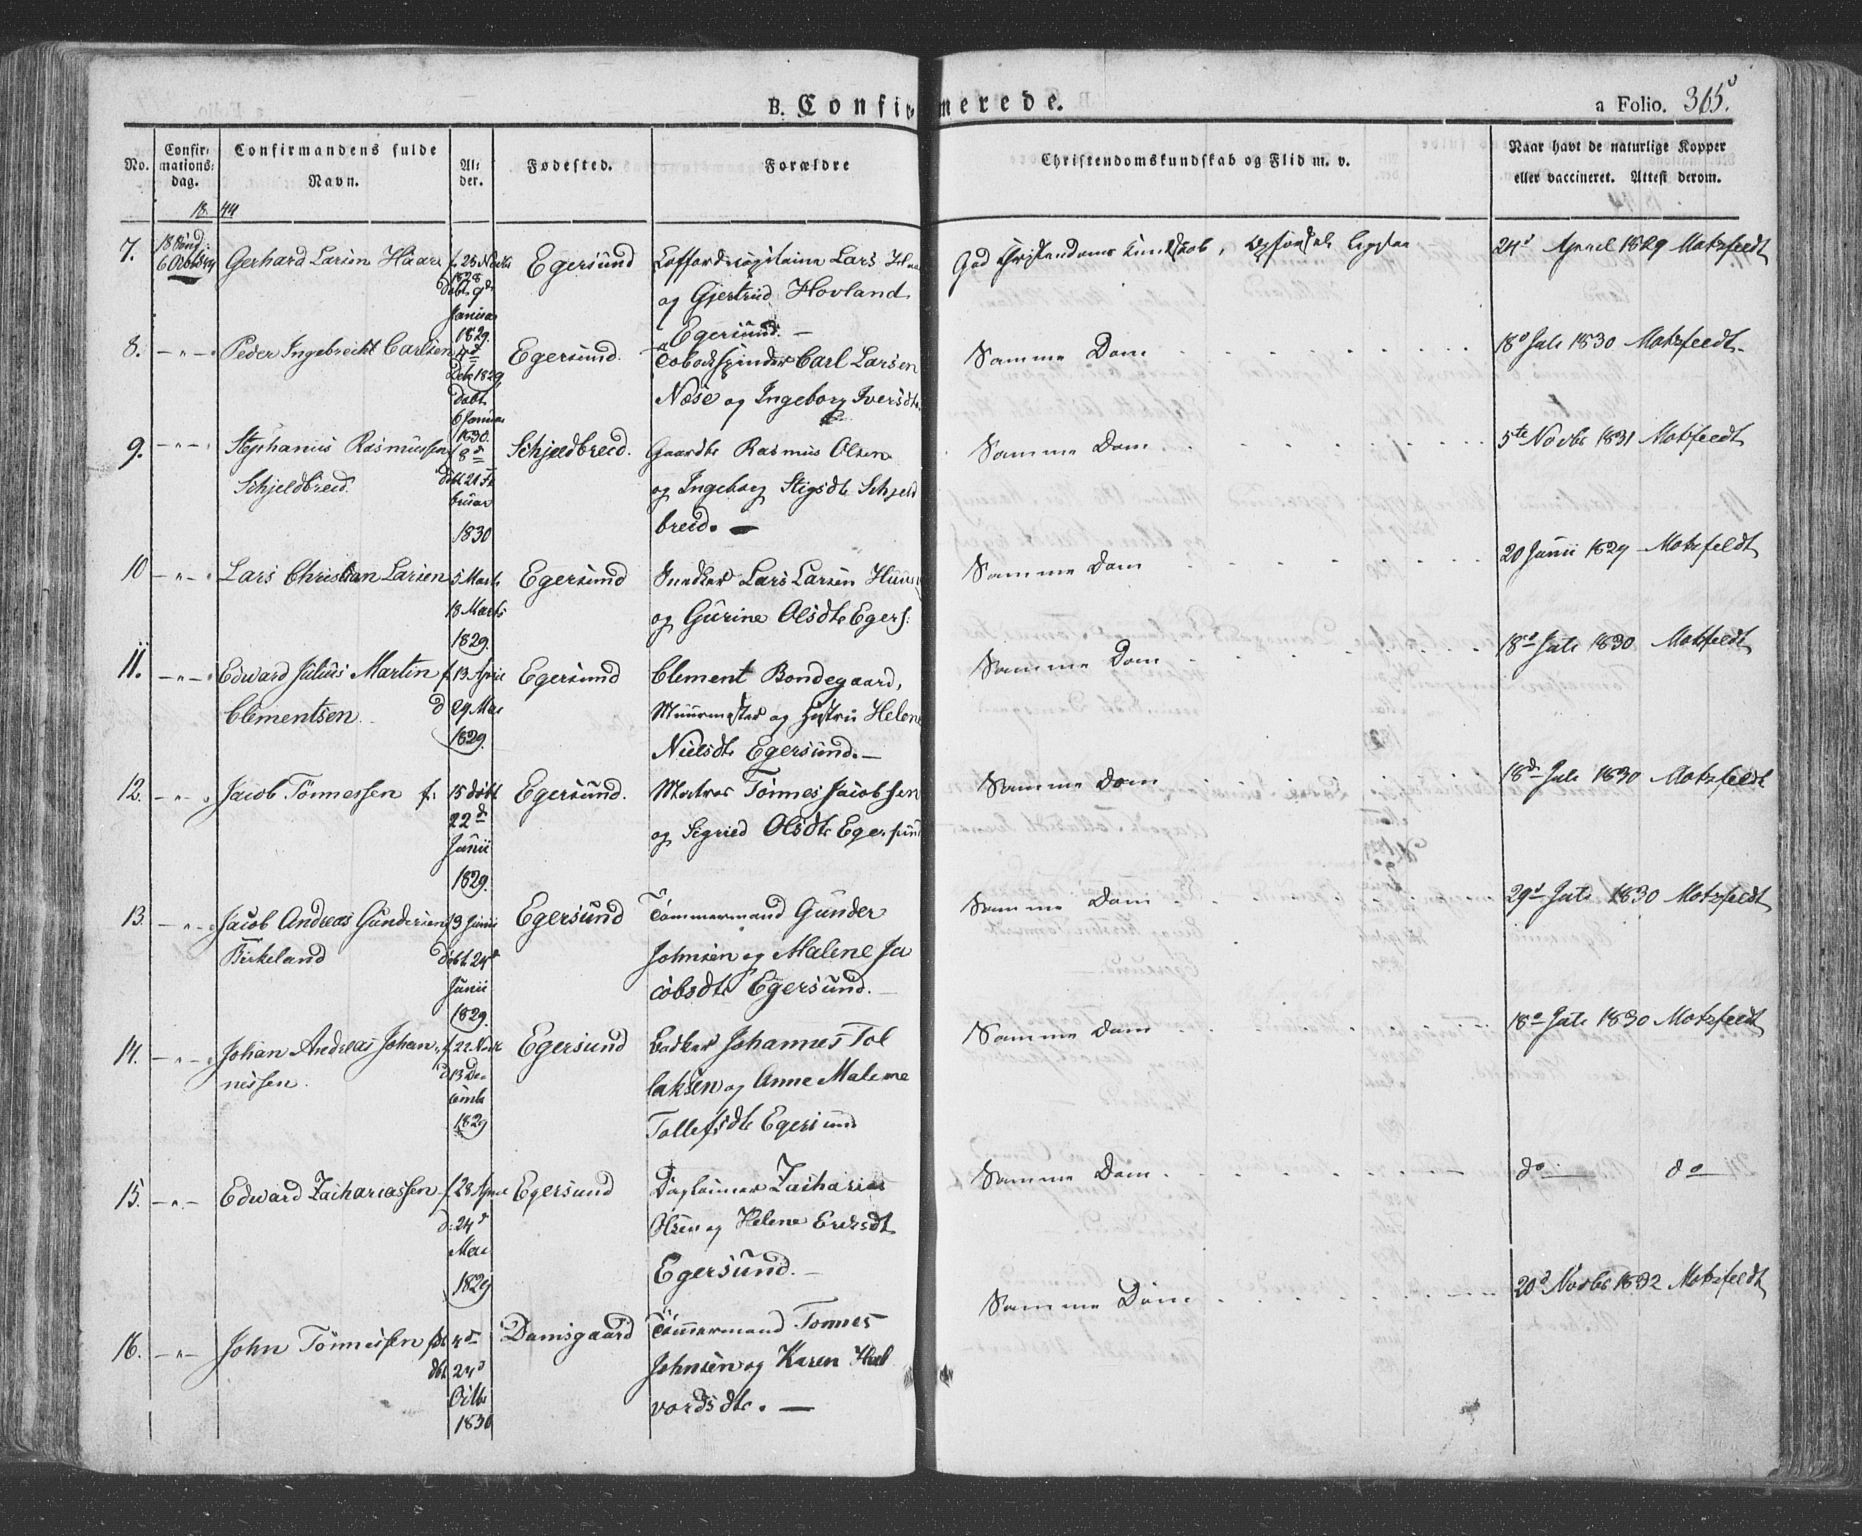 B. Confirmerede.
a Folio. 365.
No.
Confir-
mations-
dag.
Confirmandens fulde
Navn.
Al-
der.
Fødested.
Forældre
Christendomskundskab og Flid m. v.
Naar havt de naturlige Kopper
eller vaccineret. Attest derom.
18 44
7. 18 Sønd:
6 Octobr
Gerhard Larsen Haar f. 26 Novbr
1828
døbt 9de
Januar
1829.
Egersund
Lars
og Gjertrud Hovland
Egersund. —
God Christendoms Kundskab,
24d April 1829 Motzfeldt
8. — " — Peder Ingebrecht Carlsen
Debr 1829
døbt
6 Januar
1830.
Egersund.
Tobaksspinder Carl Larsen
Næse og Ingeborg Iversdtr
Samme Dom
18d Juli 1830 Motzfeldt
9. — " — Stephanus Rasmussen
Schjeldbreid
f 8d
døbt 21 Fe
bruar
1830
Schjeldbreid.
Gaardbr Rasmus Olsen
og Ingeborg Stigsdtr Schjeld
breid. —
Samme Dom
5te Novbr 1831 Motzfeldt
10 — " — Lars Christian Larsen
5 Marts
18 Marts
1829.
Egersund
Lars Larsen
og Gurine Olsdtr Egers:
Samme Dom
20 Junii 1829 Motzfeldt
11. — " — Edward Julius Martin
Clementsen
f. 13 April
d 24 Mai
1829.
Egersund
Clement Bondegaard,
Muurmester og Hustru Helene
Nielsdtr Egersund. —
Samme Dom
18d Juli 1830 Motzfeldt
12. — " — Jacob Tønnessen f. 15 døbt
22d
Junii
1829.
Egersund.
Matros Tønnes Jacobsen
og Segried Olsdtr Egersund
Samme Dom
18d Juli 1830 Motzfeldt
13. — " — Jacob Andreas Gundersen
Birkeland
f 3 Junii
døbt 24d
Junii
1829.
Egersund
Tømmermand Gunder
Johnsen og Malene Ja
cobsdtr Egersund. —
Samme Dom
29d Juli 1830 Motzfeldt
14. — " — Johan Andreas Johan
nessen.
f. 22 Novbr
d 13 De
cembr
1829
Egersund
Bødker Johannes Tol
laksen og Anne Malene
Tollefsdtr Egersund
Samme Dom
18d Juli 1830 Motzfeldt
15. — " — Edward Zachariassen f. 28 April
d. 24d
Mai
1829
Egersund
Dagleiner Zacharias
Olsen og Helene Ericsdt
Egersund. —
Samme Dom
do — do —
16. — " — John Tønnessen fød 4d
dbt 24d
Octbr
1830
Damsgaard
Tømmermand Tønnes
Johnsen og Karen Hal
vordsdtr. —
Samme Dom
20d Novbr 1832 Motzfeldt